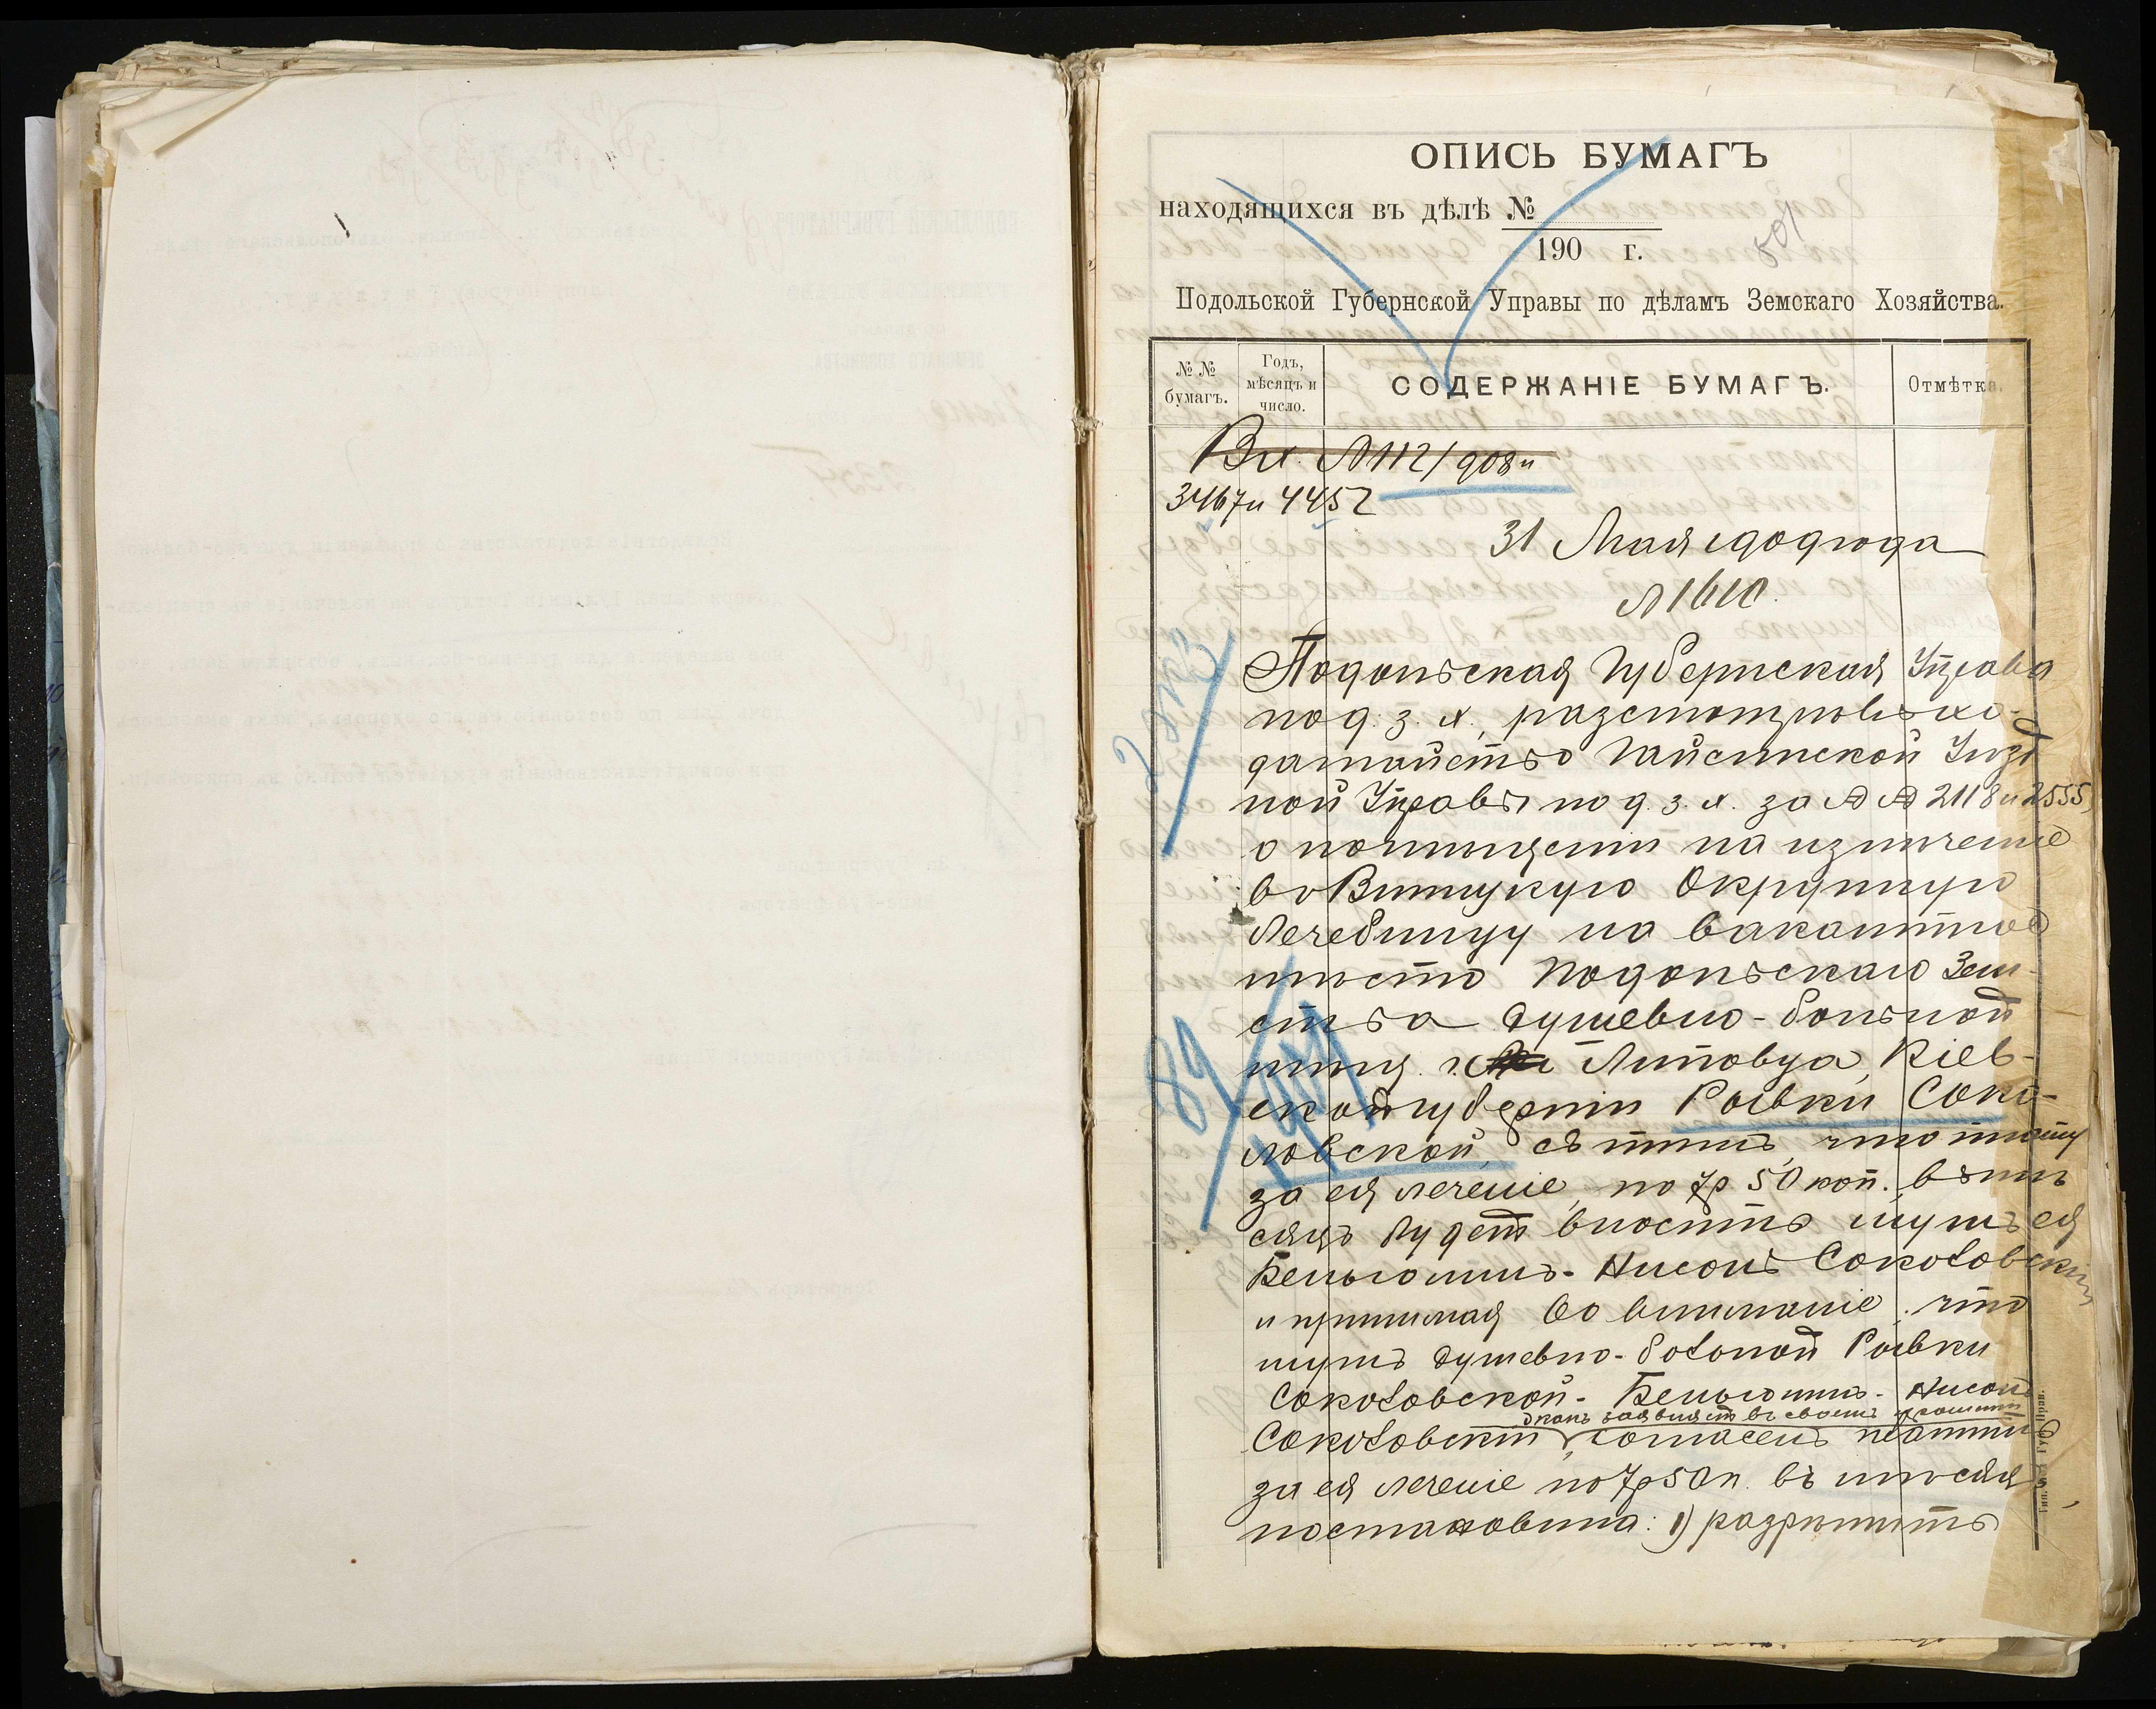 ОПИСЬ БУМАГЪ
находящихся въ дѣлѣ №
190 г.
801
Подольской Губернской Управы по дѣламъ Земскаго Хозяйства.
№№ бумагъ.
Годъ, мѣсяцъ и число.
СОДЕРЖАНІЕ БУМАГЪ.
Отмѣтка.
Вх. № 112/908 и
3467 и 4452
31 Мая 1909 года
№ 1610.
Подольская Губернская Управа
по д. з. х., разсмотрѣвъ хо-
датайство Гайсинской Уѣзд
ной Управы по д. з. х. за №№ 2118 и 2555,
о помѣщеніи на излѣченіе
въ Винницкую Окружную
Лечебницу на вакантное
мѣсто Подольскаго Зем-
ства душевно-больной
мѣщ. м. Литовца, Кіев-
ской губерніи Ройвки Соко-
ловской, съ тѣмъ, что плату
за ея леченіе, по 7 р 50 коп. въ мѣ
сяцъ будетъ вносить мужъ ея
Беньюминъ-Нисонъ Соколовскій
и принимая во вниманіе, что
мужъ душевно-больной Ройвки
Соколовской - Беньюминъ-Нисонъ
какъ заявляетъ въ своемъ прошеніи
Соколовскій, согласенъ платить
за ея леченіе по 7 р 50 к. въ мѣсяцъ,
постановила: 1) разрѣшить
89
Тип. Губ. Прав.